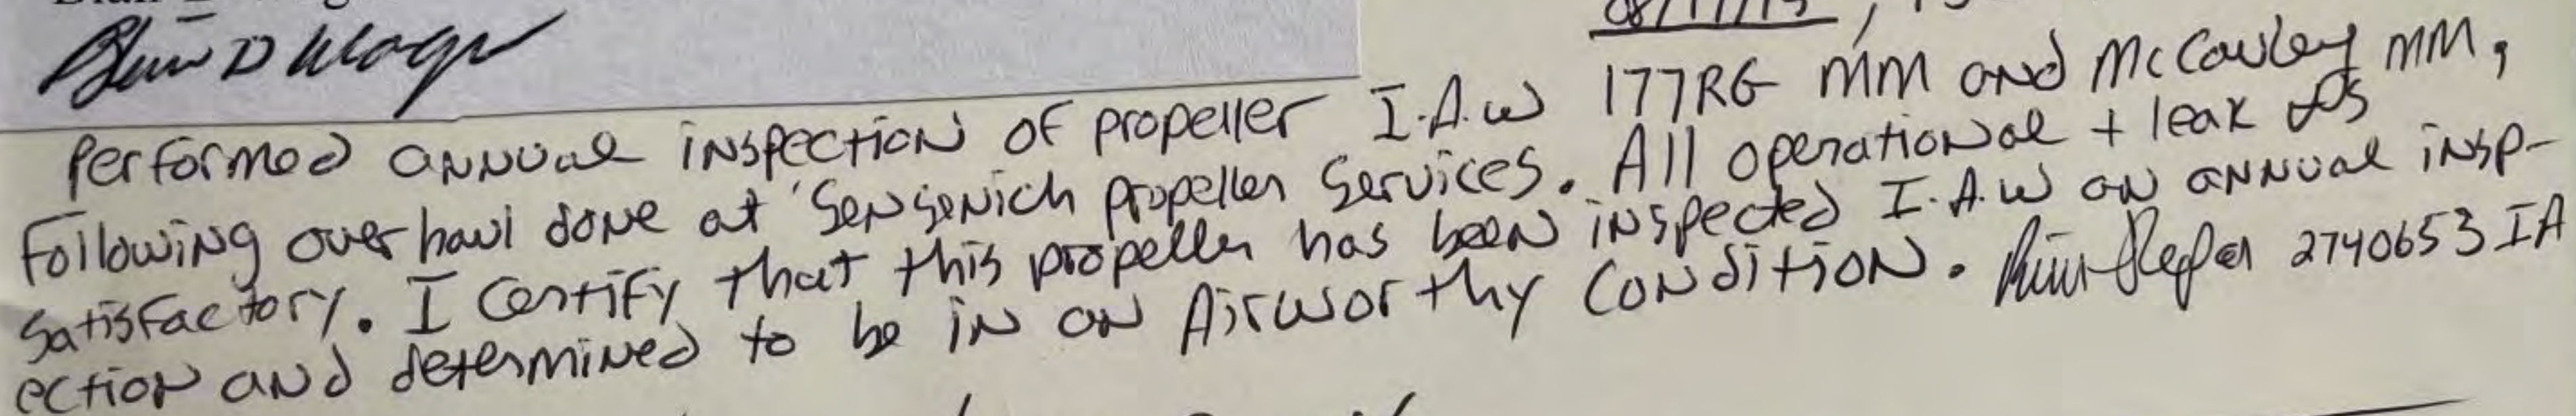 Performed annual inspection of propeller I.A.W 177RG MM and McCauley MM,
Following overhaul done at Sensenich propeller Services. All operational + leak
Satisfactory. I Certify that this propeller has been inspected I.A.W an annual insp-
ection and determined to be in an Airworthy Condition. 2740653 IA